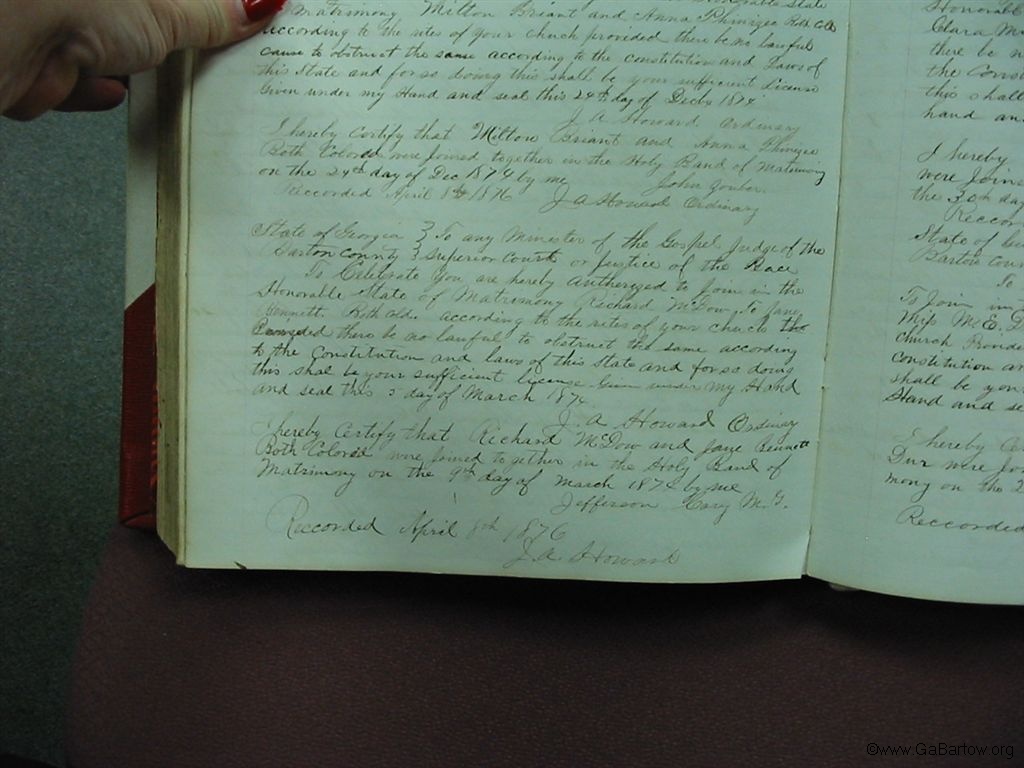 Matrimony Milton Briant and Anna Phinizee Both Cold
according to the rites of your chuch provided there be no lawful
cause to obstruct the same according to the constitution and Laws of
this State and for so doing this shall be your sufficient License
Given under my Hand and seal this 24th day of Decbr 1874
J. A. Howard Ordinary
I hereby certify that Milton Briant and Anna Phinizee
Both Colored were Joined together in the Holy Band of Matrimony
on the 24th day of Dec 1874 by me John
Reccorded April 8th 1876 J A Howard Ordinary
State of Georgia } To any Minister of the Gospel Judge of the
Barton County } Superior Court or Justice of the Peace
To Celebrate You are hereby Autherized to Join in the
Honorable State of Matrimony Richard McDow To Jane
Bennett Both Cold. according to the rites of your chuch
there be no lawful to obstruct the same according
to the Constitution and laws of this State and for so doing
this shal be your sufficient license Given under my Hand
and seal this 5 day of March 187
J. A Howard Ordinary
I hereby Certify that Richard McDow and Jane Bennett
Both Colored were Joined together in the Holy Band of
Matrimony on the 9th day of March 1874 by me
Jefferson
Reccorded April 8th 1876
J. A. Howard
Honorabl
Clara M
there be n
the Cons
this shall
hand an
I hereby
were Joine
the 30th day
Reccor
State of Ge
Barton Coun
To
To Join in
Miss M. E. D
Church Provide
Constitution an
shall be you
Hand and se
I hereby Ce
Dur were Jo
mony on the 2
Reccorded
©www.GaBartow.org